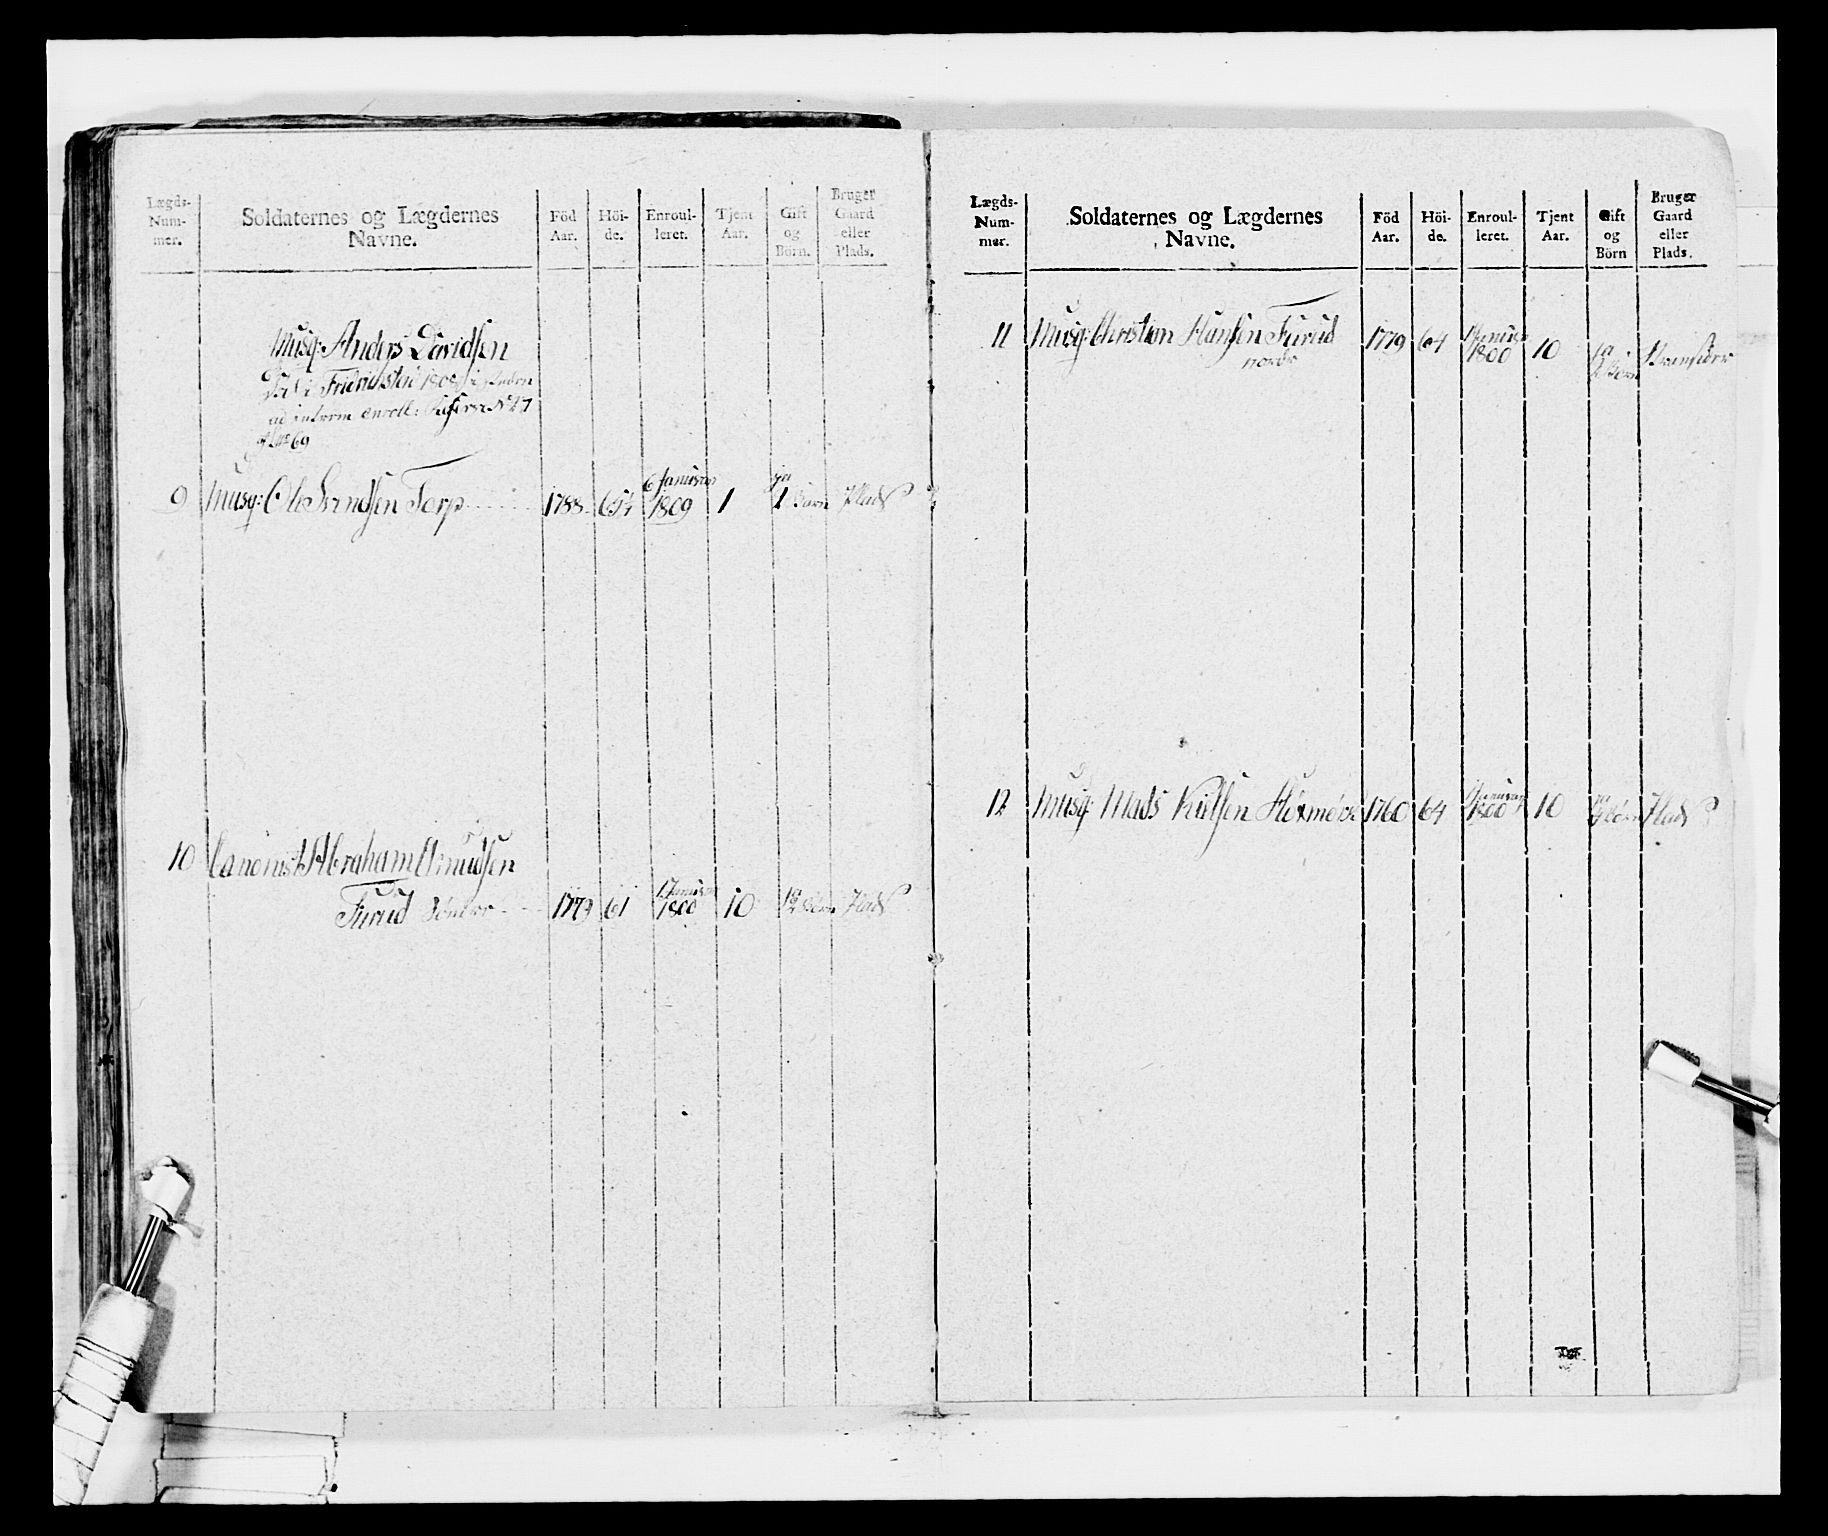 Lægds-
Num-
mer.
Soldaternes og Lægdernes
Navne.
Föd
Aar.
Höi-
de.
Enroul-
leret.
Tjent
Aar.
Gift
og
Börn.
Bruger
Gaard
eller
Plads.
Musq: Anders Davidsen
ad interim enroll:
69
9 Musq: Ole Svendsen Torp 1788 6 Januar 1809 1 ja 1 Barn Plads
10 Canonist Abraham Amundsen
Furud Sönder 61 1 Januar 1800 10 Plads
Lægds-
Num-
mer.
Soldaternes og Lægdernes
Navne.
Föd
Aar.
Höi-
de.
Enroul-
leret.
Tjent
Aar.
Gift
og
Börn
Bruger
Gaard
eller
Plads.
11 Musq: Christian Hansen Furud 1779 64 1 Januar 1800 10 ja Börn
nordr
12 Musq: Mads 1760 64 1 Januar 1800 10 ja Börn Plads